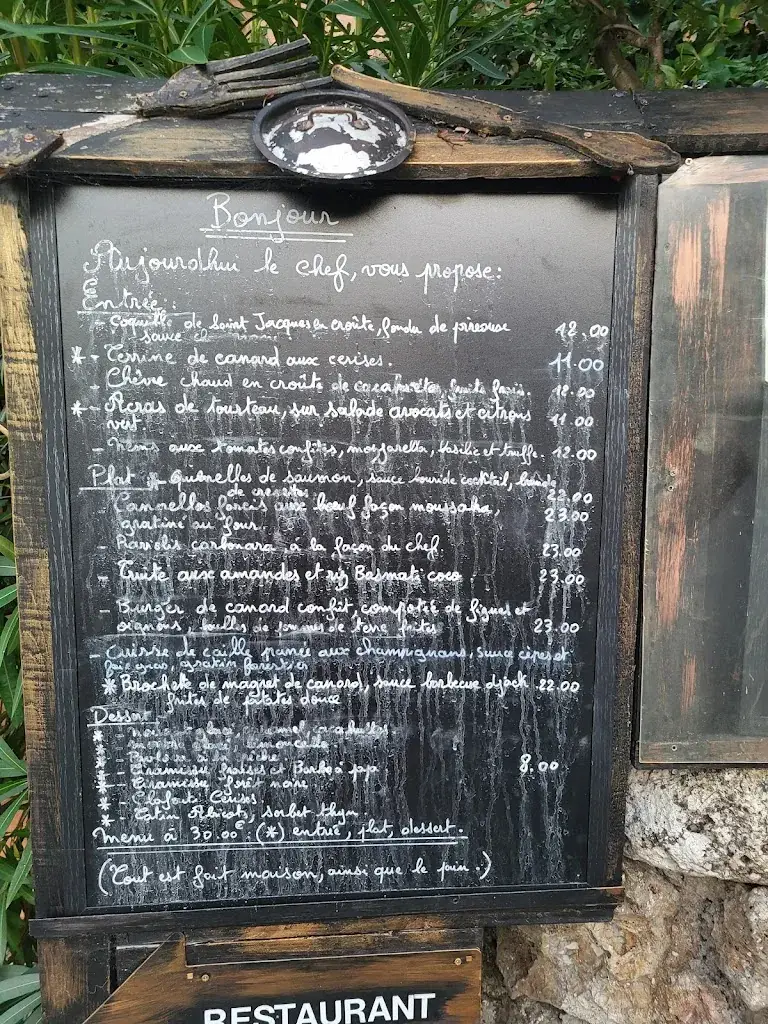 Bonjour
Aujourdhui le chef, vous propose:
Entrée:
- Coquille de Saint Jacques en croûte, fondu de
12.00
sauce
* - Terrine de canard aux cerises.
11.00
- Chèvre chaud en croûte de
12.00
* - Acras de tourteau, sur salade avocats et citrons
vert
11.00
- Nems aux tomates confites, mozzarella, basilic et truffe.
12.00
Plat * Quenelles de saumon, sauce
de crevettes
22.00
- Cannellos farcis aux bœuf façon moussaka,
gratiné au four.
23.00
- Raviolis carbonara, à la façon du chef.
23.00
- Truite aux amandes et riz Basmati coco.
23.00
- Burger de canard confit, compotée de figues et
oignons, de pommes de terre frites
23.00
- Cuisse de caille panée aux champignons, sauce cèpes et
foie gras, gratin forestier
* Brochette de magret de canard, sauce barbecue djack
22.00
frites de patates douce
Dessert
* -
* -
* -
* - Tiramissu fraises et Barbe à papa
8.00
* - Tiramissu forêt noire
* - Clafoutis Cerises
* - Tatin Abricots, sorbet thym
Menu à 30.00€ : (*) entrée, plat, dessert.
(Tout est fait maison, ainsi que le pain.)
RESTAURANT